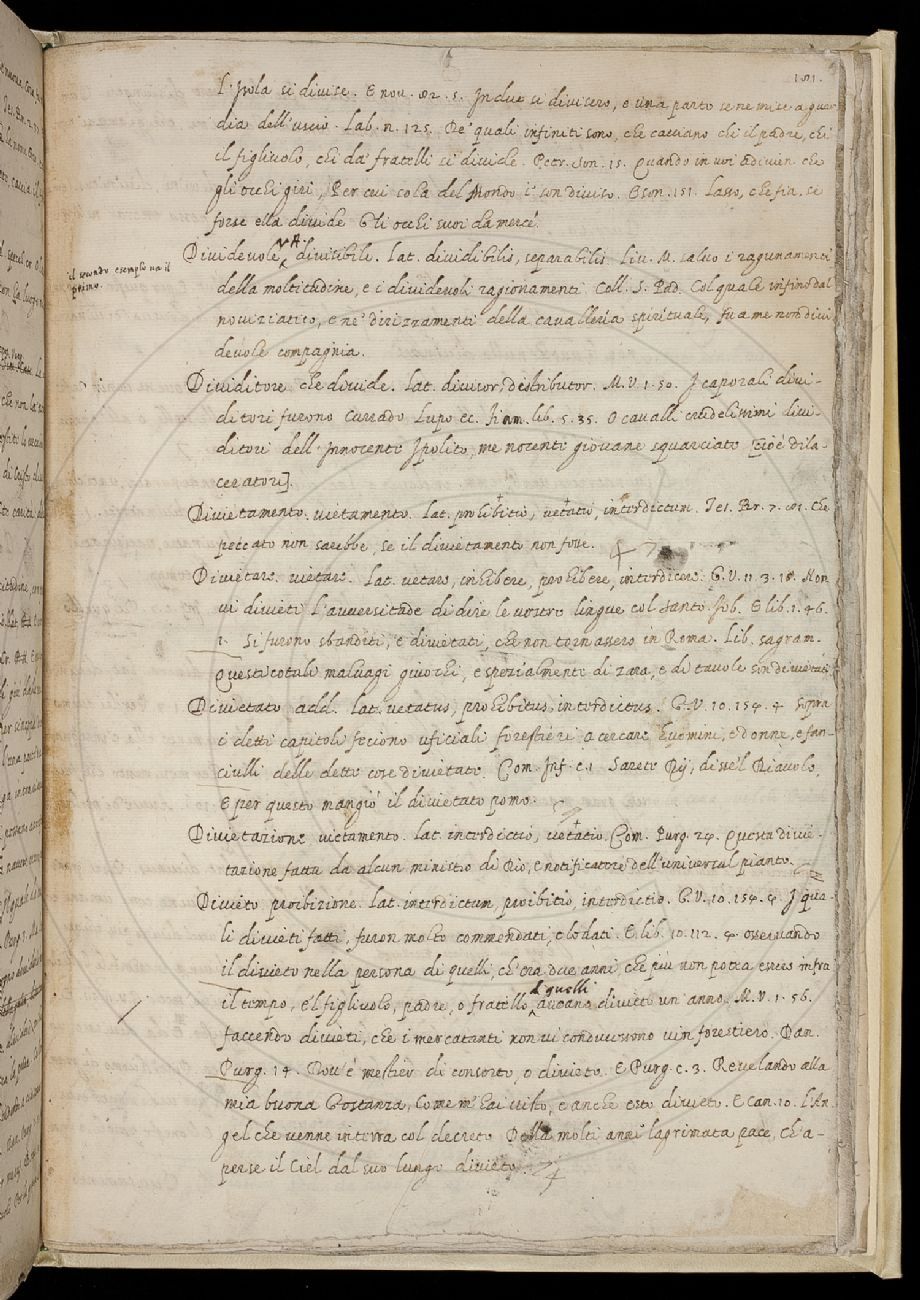 181.
l'Isola si divise. E nov. 82. 5. In due si divisero, e una parte se ne mise a guar
dia dell'uscio. Lab. n. 125. De' quali infiniti sono, che cacciano chi il padre, chi
il figliuolo, chi da' fratelli si divide. Petr. Son. 15. Quando in voi adivien che
gli occhi giri, Per cui sola del Mondo i' son diviso. E son. 151. Lasso, che fia, se
forse ella divide Gli occhi suoi da mercè.
Dividevole V.A. divisibile. Lat. dividibilis, separabilis. Liv. M. salvo i ragunamenti
il secondo esemplo va il
primo.
della moltitudine, e i dividevoli ragionamenti. Coll. S. Pad. Col quale infino dal
noviziatico, e ne' dirizzamenti della cavalleria spirituale, fu a me non divi
devole compagnia.
Dividitore che divide. Lat. divisor, distributor. M. V. 1. 50. I caporali divi-
ditori furono Currado Lupo ec. Fiam. lib. 5. 35. O cavalli crudelissimi divi-
ditori dell'innocente Ipolito, me nocente giovane squarciate [cioè dila-
ceratori].
Divietamento. vietamento. Lat. prohibitio, vetatio, interdictum. Tes. Br. 7. Che
peccato non sarebbe, se il divietamento non fosse.
Divietare. vietare. Lat. vetare, inhibere, prohibere, interdicere. G. V. 11. 3. 18. Non
vi divieti l'avversitade di dire le vostre lingue col santo Iob. E lib. 1. 46.
1. Si furono sbanditi, e divietati, che non tornassero in Roma. Lib. sagram.
Questi cotali malvagi giuochi, e spezialmente di zara, e di tavole son divietati.
Divietato add. Lat. vetatus, prohibitus, interdictus. G. V. 10. 154. 4. Sopra
i detti capitoli feciono uficiali forestieri a cercare huomini, e donne, e fan-
ciulli delle dette cose divietate. Com. Inf. c. 1. Sarete Dij, disse'l Diavolo,
E per questo mangiò il divietato pomo.
Divietazione vietamento. Lat. interdictio, vetatio. Com. Purg. 24. Questa divie-
tazione fatta da alcun ministro di Dio, e notificatore dell'universal pianto.
Divieto proibizione. Lat. interdictum, proibitio, interdictio. G. V. 10. 154. 4. I qua-
li divieti fatti, furon molto commendati, e lodati. E lib. 10. 112. 4. osservando
il divieto nella persona di quelli, ch'era due anni, che più non potea essere infra
il tempo, e'l figliuolo, padre, o fratello d quelli aveano divieto un anno. M. V. 1. 56.
faccendo divieti, che i mercatanti non vi conducessono vin forestiero. Dan.
Purg. 14. Dov'è mestier di consorto, o divieto. E Purg. c. 3. Revelando alla
mia buona Gostanza, Come m'hai visto, e anche esto divieto. E Can. 10. L'An
gel che venne in terra col decreto Della molti anni lagrimata pace, ch'a-
perse il Ciel dal suo lungo divieto.